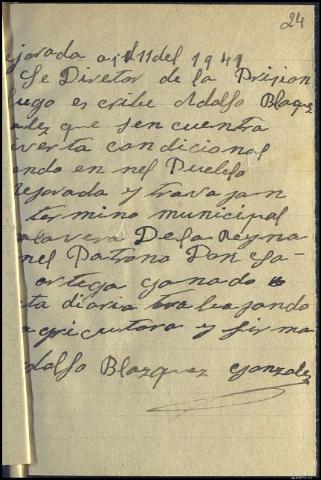 24
ejorada a 11 del 1941
Se Diretor de la Prision
luego escribe Adolfo Blaquez
alez que sen cuentra
iverta condicional
ando en nel Pueblo
ejorada y travajan
termino municipal
alavera De la Reyna
nel Patrono Don Ga-
ortega ganado
ta diaria trabajando
agricutora y firma
dolfo Blazquez Gonzalez